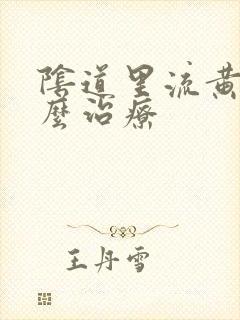 陰道里流黄
麽治療
王丹雪